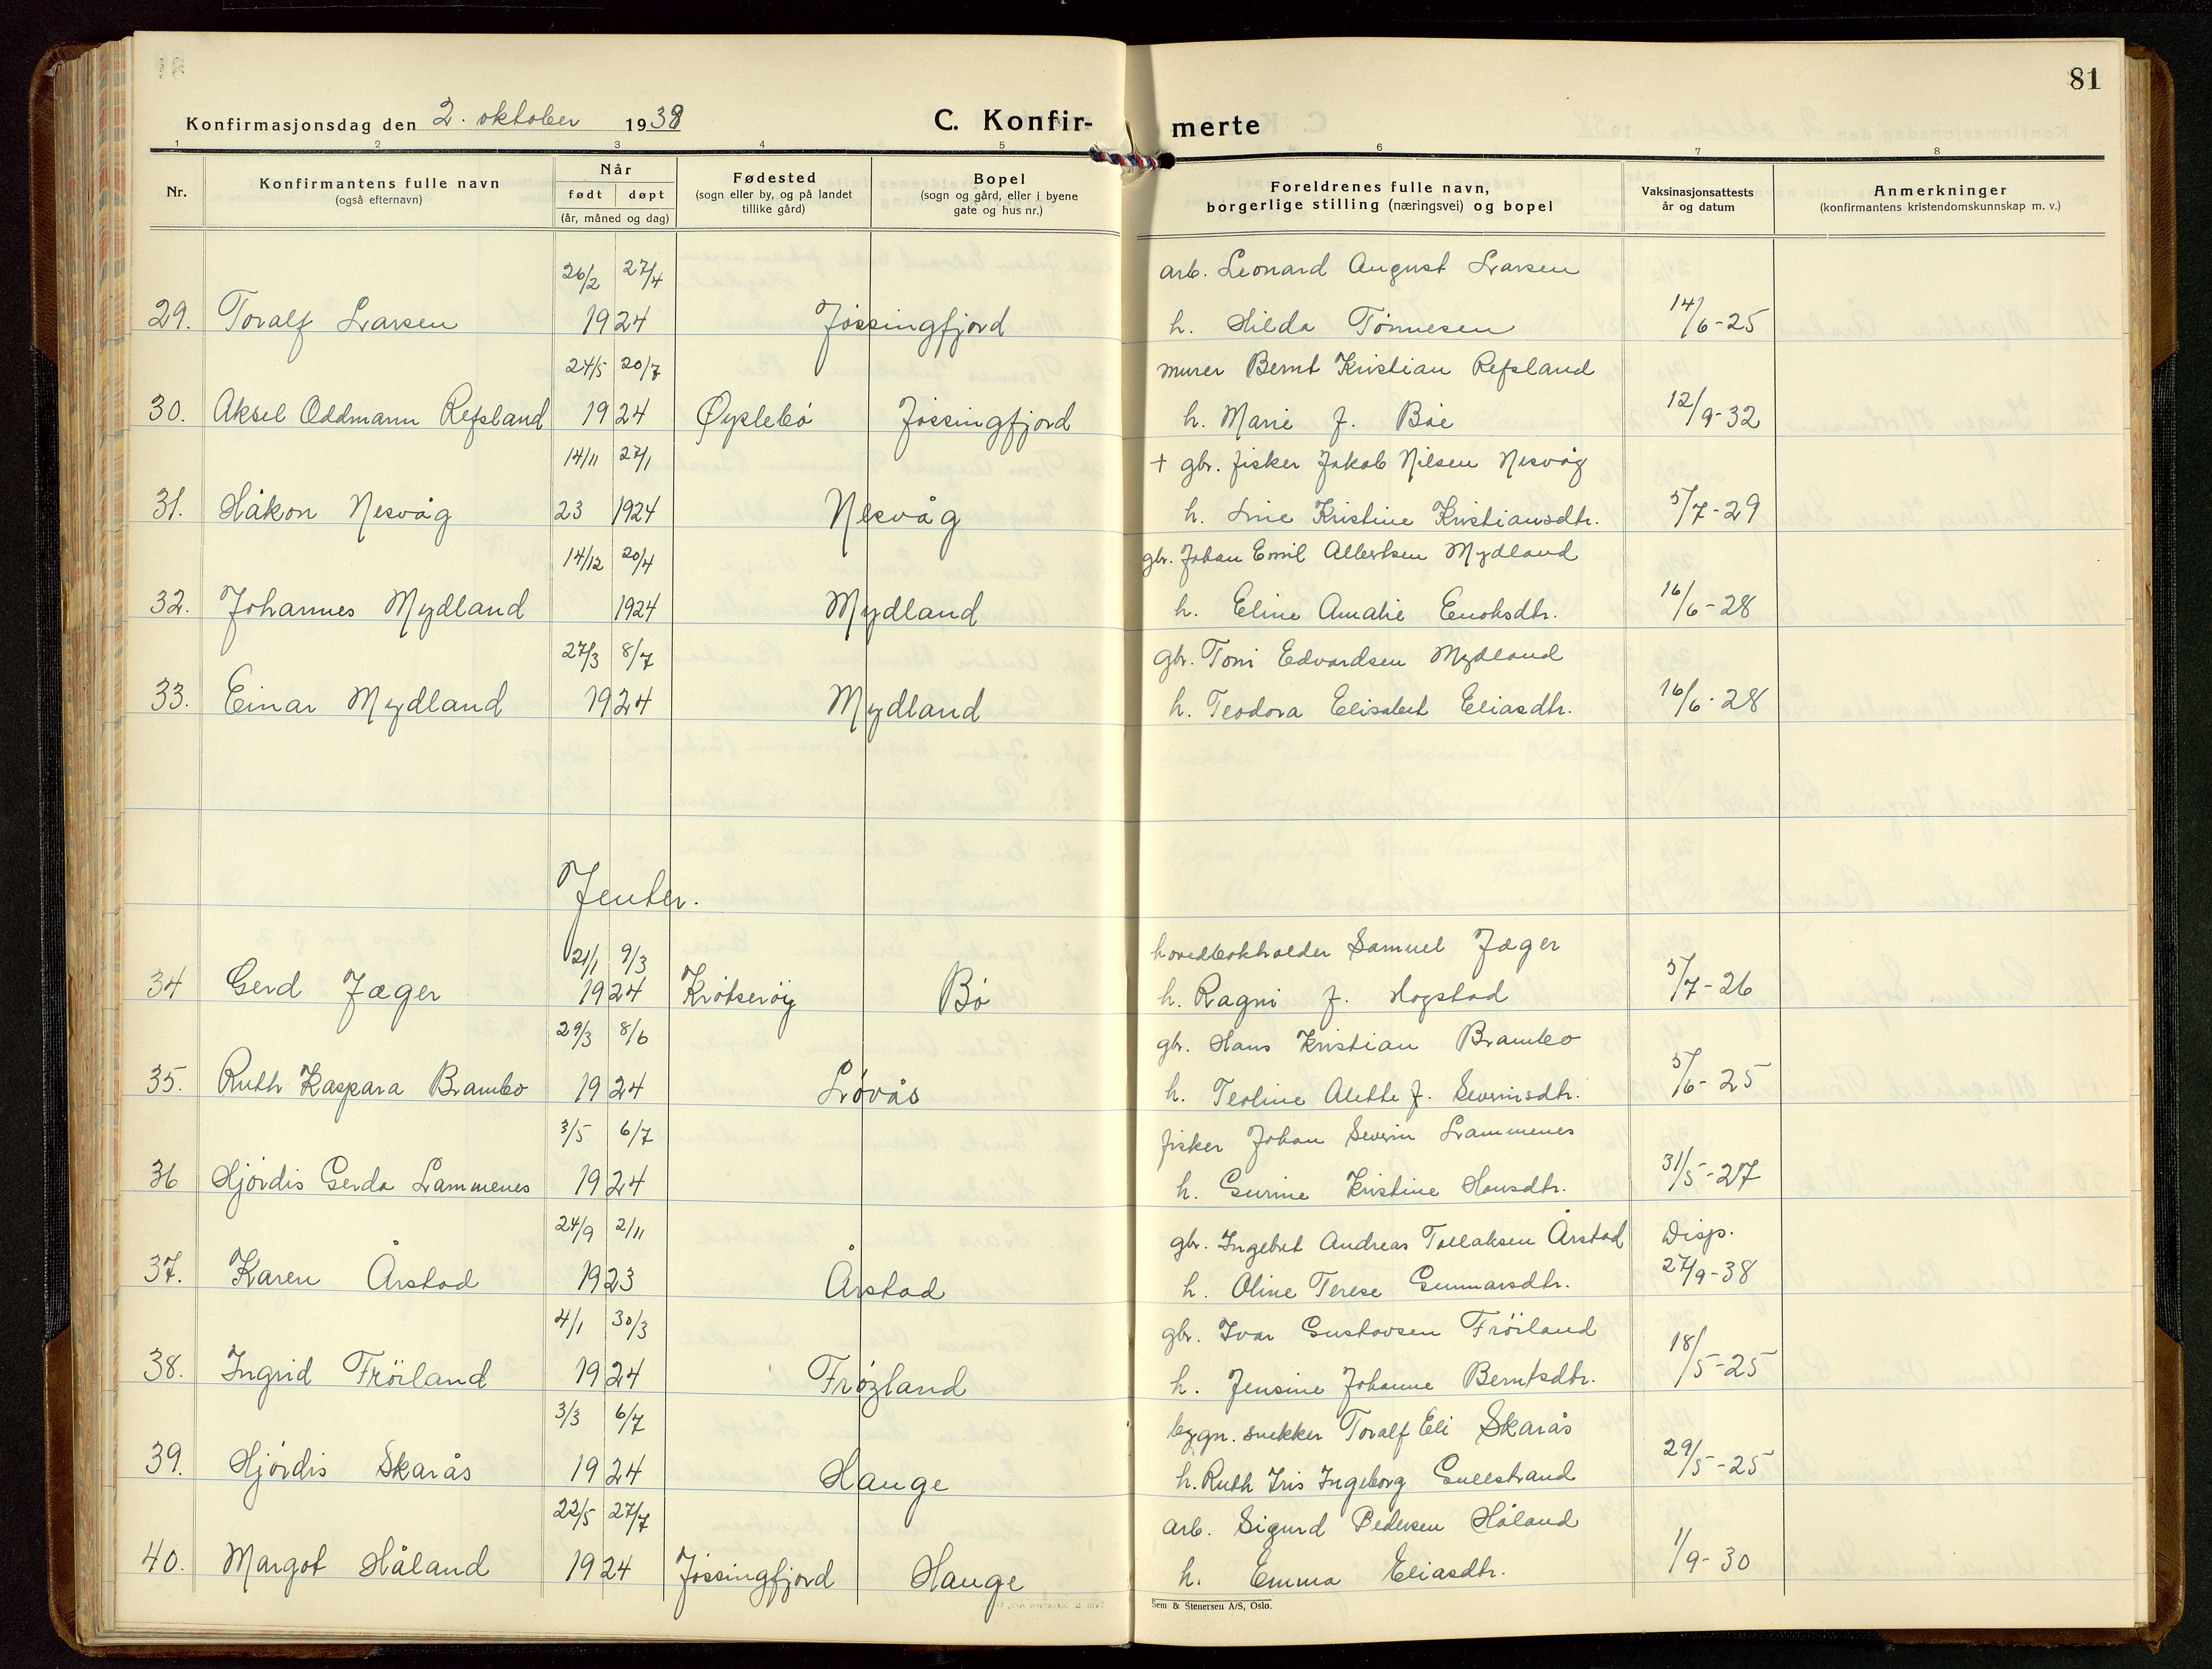 81
Konfirmasjonsdag den 2. oktober 1938
C. Konfir-
merte
1 2 3 4 5 6 7 8
Nr.
Konfirmantens fulle navn
(også efternavn)
Når
født døpt
(år, måned og dag)
Fødested
(sogn eller by, og på landet
tillike gård)
Bopel
(sogn og gård, eller i byene
gate og hus nr.)
Foreldrenes fulle navn,
borgerlige stilling (næringsvei) og bopel
Vaksinasjonsattests
år og datum
Anmerkninger
(konfirmantens kristendomskunnskap m. v.)
26/2 27/4 arb. Leonard August Larsen
29. Toralf Larsen 1924 Jøssingfjord h. Hilda Tønnesen 14/6-25
24/5 20/7 murer Bernt Kristian Refsland
30. Aksel Oddmann Refsland 1924 Øyslebø Jøssingfjord h. Marie f. Bøe 12/9-32
14/11 27/1 + gbr. fisker Jakob Nilsen Nesvåg
31. Håkon Nesvåg 23 1924 Nesvåg h. Line Kristine Kristiansdtr. 5/7-29
14/12 20/4 gbr. Johan Emil Albertsen Mydland
32. Johannes Mydland 1924 Mydland h. Eline Amalie Enoksdtr. 16/6-28
27/3 8/7 gbr. Toni Edvardsen Mydland
33. Einar Mydland 1924 Mydland h. Teodora Elisabet Eliasdtr. 16/6-28
Jenter.
21/1 9/3 hovedbokholder Samuel Jæger
34 Gerd Jæger 1924 Krøkerøy Bø h. Ragni f. Hogstad 5/7-26
29/3 8/6 gbr. Hans Kristian Brambo
35. Ruth Kaspara Brambo 1924 Løvås h. Teoline Alette f. Severinsdtr. 5/6-25
3/5 6/7 fisker Johan Severin Lammenes
36 Hjørdis Gerda Lammenes 1924 h. Gurine Kristine Hansdtr. 31/5-27
24/9 2/11 gbr. Ingebret Andreas Tollaksen Årstad Disp.
37. Karen Årstad 1923 Årstad h. Oline Terese Gunnarsdtr. 27/9-38
4/1 30/3 gbr. Ivar Gustavsen Frøiland
38. Ingrid Frøiland 1924 Frøyland h. Jensine Johanne Berntsdtr. 18/5-25
3/3 6/7 bygn. snekker Toralf Eli Skarås
39. Hjørdis Skarås 1924 Hauge h. Ruth Iris Ingeborg Gullstrand 29/5-25
22/5 27/7 arb. Sigurd Pedersen Håland
40. Margot Håland 1924 Jøssingfjord Hauge h. Emma Eliasdtr. 1/9-30
Sem & Stenersen A/S, Oslo.